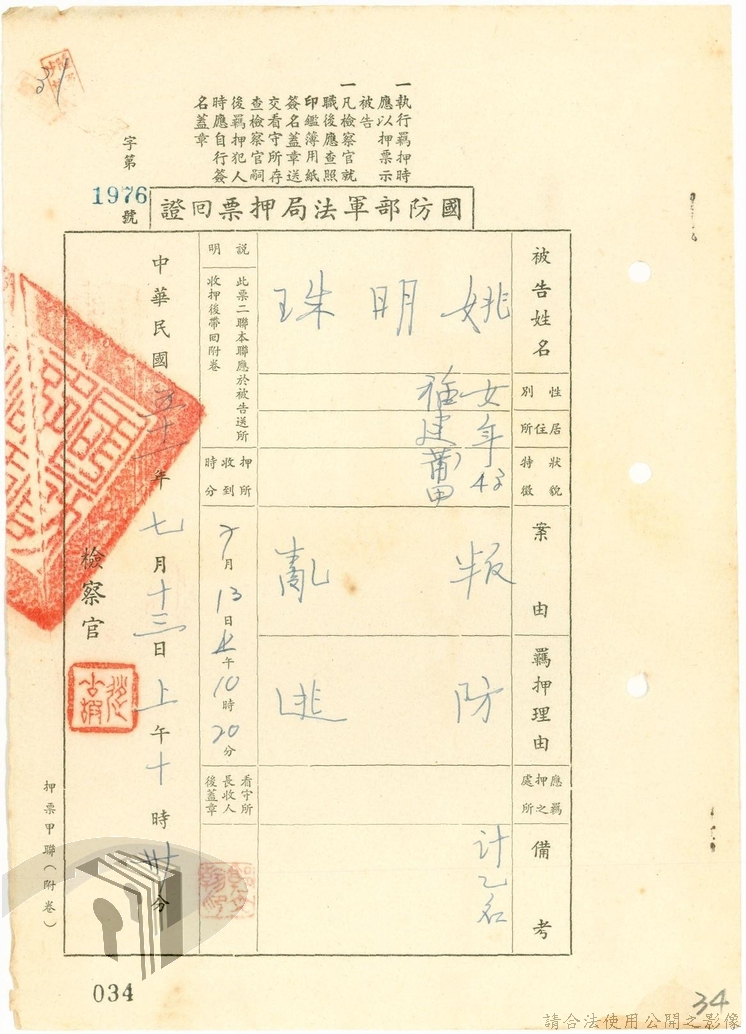 一執行羈押時
應以押票示
被告
一凡檢察官就
職後應查照
印鑑簿用紙
簽名蓋章送
交看守所存
查檢察官嗣
後羈押犯人
時應自行簽
名蓋章
字第
1976
號
國防部軍法局押票回證
被告姓名
姚明珠
性別
女
居住所
狀貌特徵
年43
福建莆田
案由
叛亂
羈押理由
防逃
應羈押之處所
備考
計乙名
說明
此票二聯本聯應於被告送所
收押後帶回附卷
押所收到時分
7月13日上午10時20分
看守所長收人後蓋章
中華民國五十一年七月十三日上午十時廿分
檢察官
押票甲聯(附卷)
034
34
31
請合法使用公開之影像